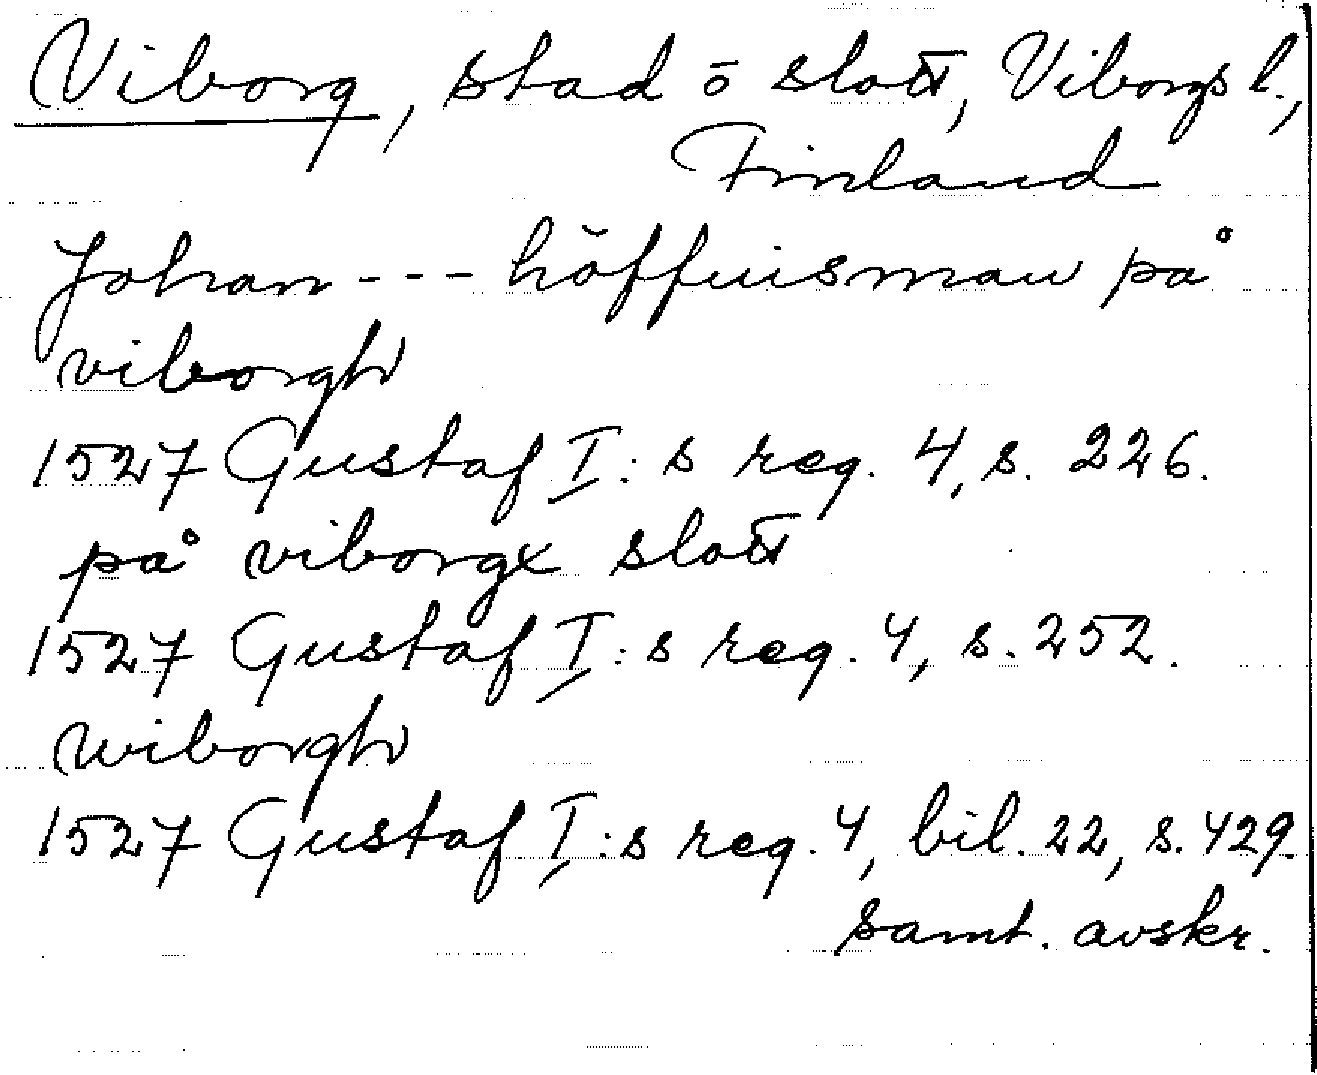 Viborg, stad ō slott, Viborgs l.,
Finland
Johan --- höffuisman på
viborgh
1527 Gustaf I:s reg. 4, s. 226.
på viborgx slott
1527 Gustaf I:s reg. 4, s. 252.
wiborgh
1527 Gustaf I:s reg. 4, bil. 22, s. 429.
samt. avskr.